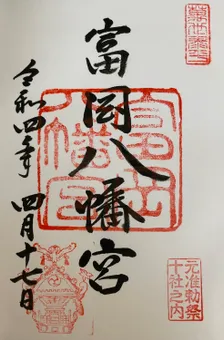 富岡八幡宮
令和四年
四月十七日
富岡八幡宮
元准勅祭
十社之内